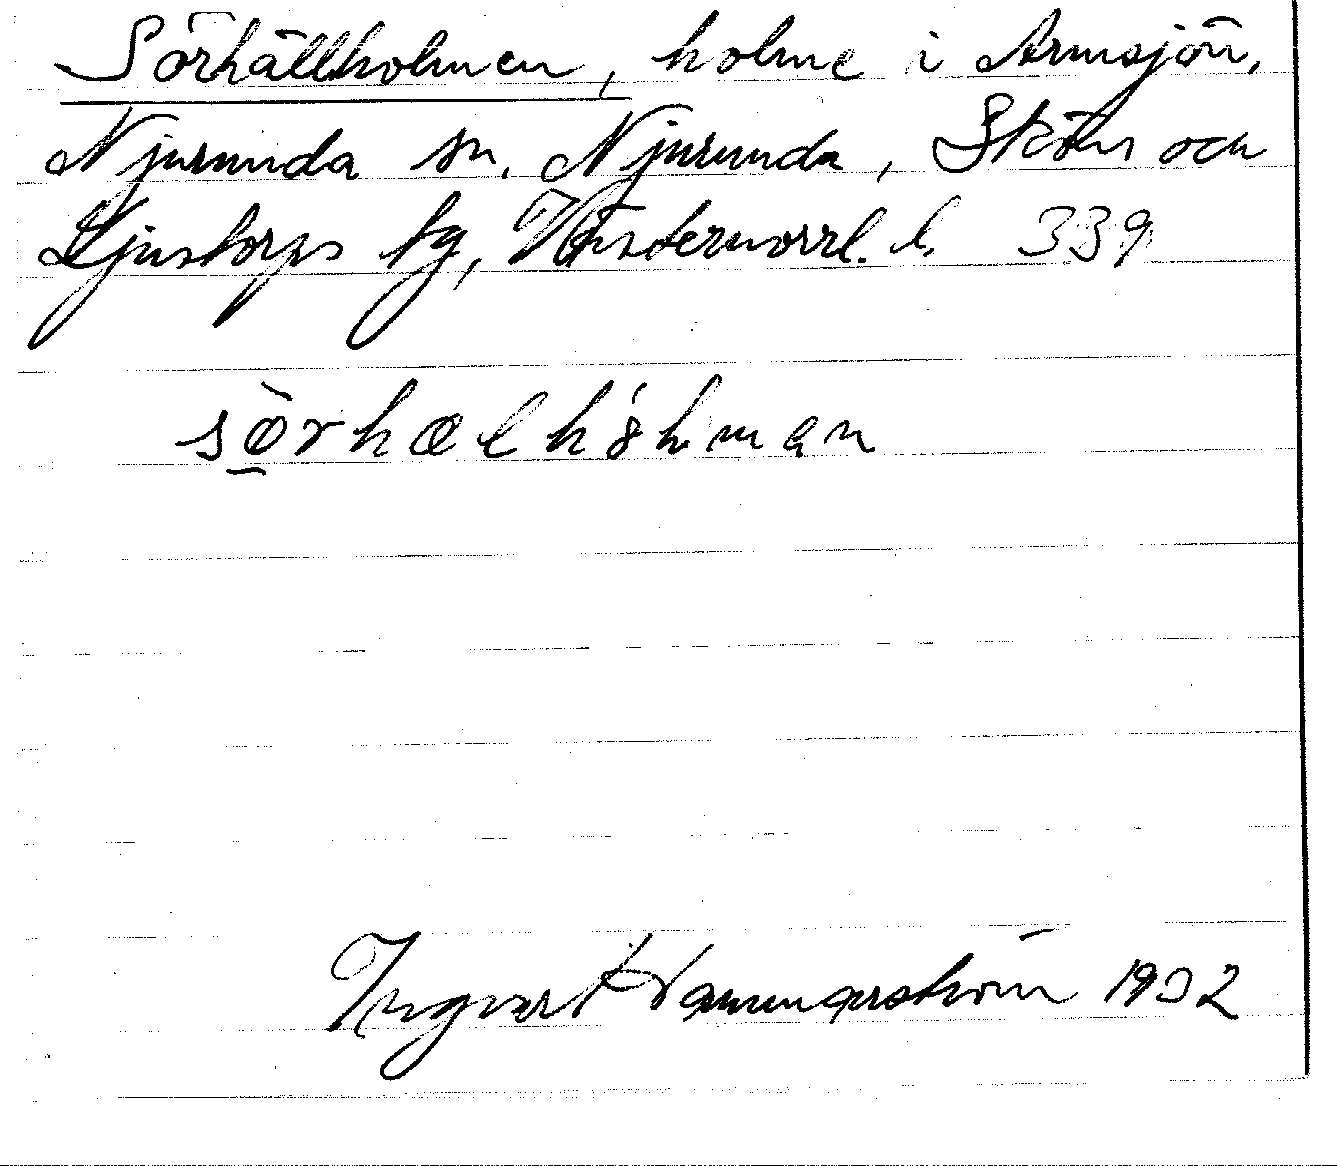 Sörhällholmen, holme i Armsjön,
Njurunda sn. Njurunda, Sköns och
Ljustorps tg, Västernorrl. l. 339
sørhælhólman
Ingvar Hammarström 1932